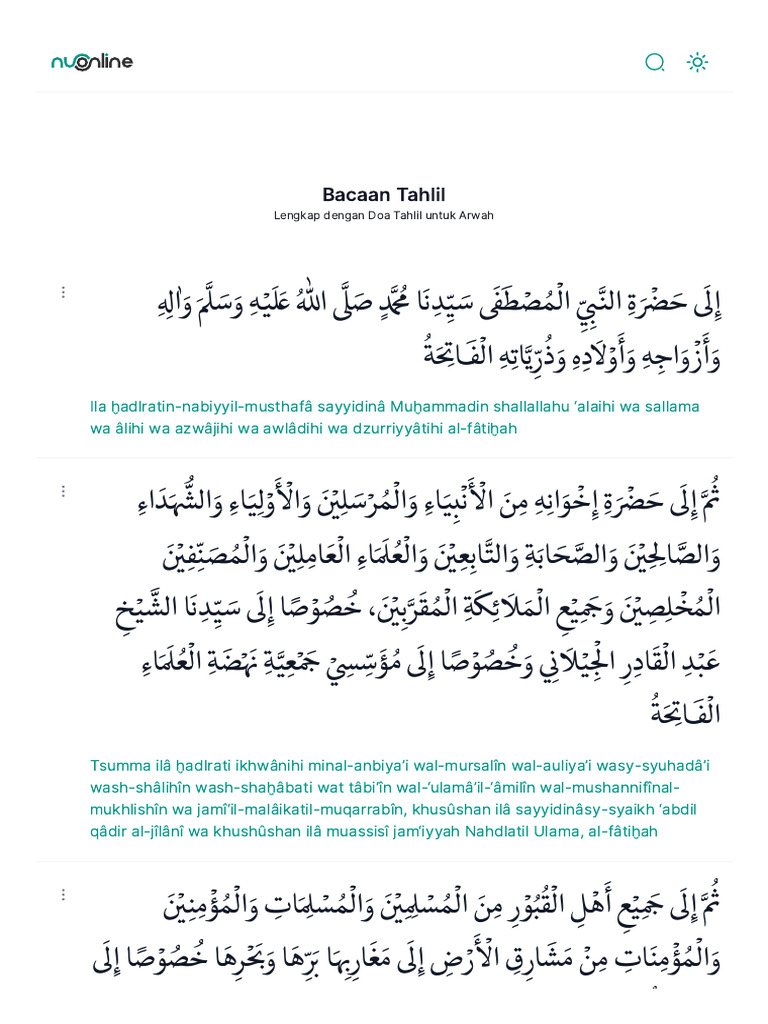 nuonline
Bacaan Tahlil
Lengkap dengan Doa Tahlil untuk Arwah
إِلَى حَضْرَةِ النَّبِيِّ الْمُصْطَفَى سَيِّدِنَا مُحَمَّدٍ صَلَّى اللهُ عَلَيْهِ وَسَلَّمَ وَاٰلِهِ
وَأَزْوَاجِهِ وَأَوْلَادِهِ وَذُرِّيَّاتِهِ الْفَاتِحَةُ
Ila ḫadlratin-nabiyyil-musthafâ sayyidinâ Muḫammadin shallallahu ‘alaihi wa sallama
wa âlihi wa azwâjihi wa awlâdihi wa dzurriyyâtihi al-fâtiḫah
ثُمَّ إِلَى حَضْرَةِ إِخْوَانِهِ مِنَ الْأَنْبِيَاءِ وَالْمُرْسَلِيْنَ وَالْأَوْلِيَاءِ وَالشُّهَدَاءِ
وَالصَّالِحِيْنَ وَالصَّحَابَةِ وَالتَّابِعِيْنَ وَالْعُلَمَاءِ الْعَامِلِيْنَ وَالْمُصَنِّفِيْنَ
الْمُخْلِصِيْنَ وَجَمِيْعِ الْمَلَائِكَةِ الْمُقَرَّبِيْنَ، خُصُوْصًا إِلَى سَيِّدِنَا الشَّيْخِ
عَبْدِ الْقَادِرِ الْجِيْلَانِي وَخُصُوْصًا إِلَى مُؤَسِّسِيْ جَمْعِيَّةِ نَهْضَةِ الْعُلَمَاءِ
الْفَاتِحَةُ
Tsumma ilâ ḫadlrati ikhwânihi minal-anbiya’i wal-mursalîn wal-auliya’i wasy-syuhadâ’i
wash-shâlihîn wash-shaḫâbati wat tâbi’în wal-‘ulamâ’il-‘âmilîn wal-mushannifînal-
mukhlishîn wa jamî‘il-malâikatil-muqarrabîn, khusûshan ilâ sayyidinâsy-syaikh ‘abdil
qâdir al-jîlânî wa khushûshan ilâ muassisî jam‘iyyah Nahdlatil Ulama, al-fâtiḫah
ثُمَّ إِلَى جَمِيْعِ أَهْلِ الْقُبُوْرِ مِنَ الْمُسْلِمِيْنَ وَالْمُسْلِمَاتِ وَالْمُؤْمِنِيْنَ
وَالْمُؤْمِنَاتِ مِنْ مَشَارِقِ الْأَرْضِ إِلَى مَغَارِبِهَا بَرِّهَا وَبَحْرِهَا خُصُوْصًا إِلَى